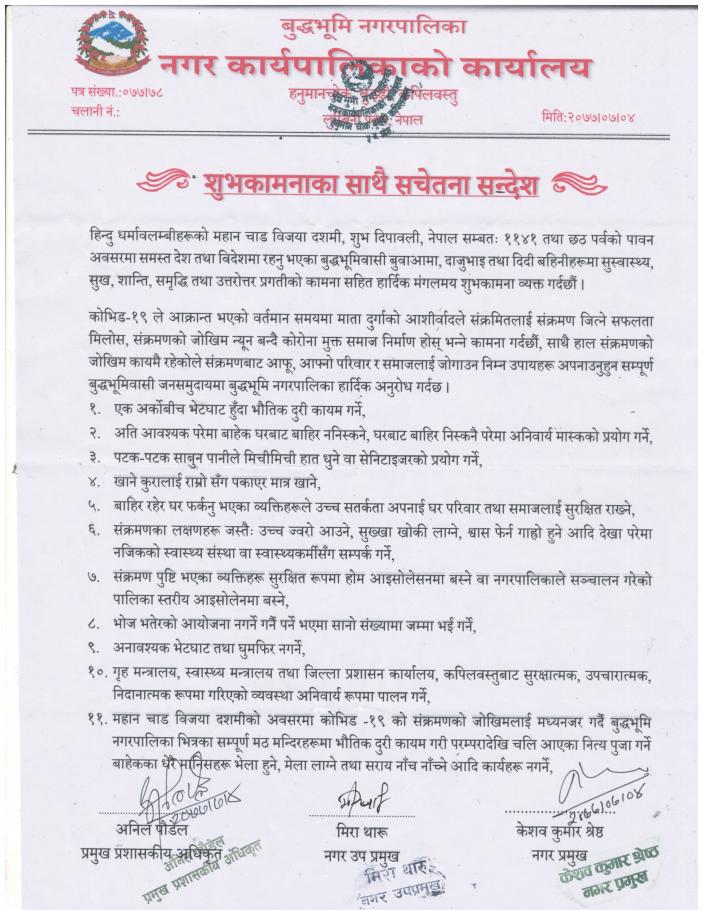 बुद्धभूमि नगरपालिका
नगर कार्यपालिकाको कार्यालय
पत्र संख्या.:०७७।७८
हनुमानचोक, कपिलवस्तु
चलानी नं.:
नेपाल
मिति:२०७७।०७।०४
शुभकामनाका साथै सचेतना सन्देश
हिन्दु धर्मावलम्बीहरूको महान चाड विजया दशमी, शुभ दिपावली, नेपाल सम्बतः ११४१ तथा छठ पर्वको पावन
अवसरमा समस्त देश तथा विदेशमा रहनु भएका बुद्धभूमिवासी बुवाआमा, दाजुभाइ तथा दिदी बहिनीहरूमा सुस्वास्थ्य,
सुख, शान्ति, समृद्धि तथा उत्तरोत्तर प्रगतीको कामना सहित हार्दिक मंगलमय शुभकामना व्यक्त गर्दछौं ।
कोभिड-१९ ले आक्रान्त भएको वर्तमान समयमा माता दुर्गाको आशीर्वादले संक्रमितलाई संक्रमण जित्ने सफलता
मिलोस, संक्रमणको जोखिम न्यून बन्दै कोरोना मुक्त समाज निर्माण होस् भन्ने कामना गर्दछौं, साथै हाल संक्रमणको
जोखिम कायमै रहेकोले संक्रमणबाट आफू, आफ्नो परिवार र समाजलाई जोगाउन निम्न उपायहरू अपनाउनुहुन सम्पूर्ण
बुद्धभूमिवासी जनसमुदायमा बुद्धभूमि नगरपालिका हार्दिक अनुरोध गर्दछ ।
१. एक अर्काबीच भेटघाट हुँदा भौतिक दुरी कायम गर्ने,
२. अति आवश्यक परेमा बाहेक घरबाट बाहिर ननिस्कने, घरबाट बाहिर निस्कनै परेमा अनिवार्य मास्कको प्रयोग गर्ने,
३. पटक-पटक साबुन पानीले मिचीमिची हात धुने वा सेनिटाइजरको प्रयोग गर्ने,
४. खाने कुरालाई राम्रो सँग पकाएर मात्र खाने,
५. बाहिर रहेर घर फर्कनु भएका व्यक्तिहरूले उच्च सतर्कता अपनाई घर परिवार तथा समाजलाई सुरक्षित राख्ने,
६. संक्रमणका लक्षणहरू जस्तैः उच्च ज्वरो आउने, सुख्खा खोकी लाग्ने, श्वास फेर्न गाह्रो हुने आदि देखा परेमा
नजिकको स्वास्थ्य संस्था वा स्वास्थ्यकर्मीसँग सम्पर्क गर्ने,
७. संक्रमण पुष्टि भएका व्यक्तिहरू सुरक्षित रूपमा होम आइसोलेसनमा बस्ने वा नगरपालिकाले सञ्चालन गरेको
पालिका स्तरीय आइसोलेनमा बस्ने,
८. भोज भतेरको आयोजना नगर्ने गर्नै पर्ने भएमा सानो संख्यामा जम्मा भई गर्ने,
९. अनावश्यक भेटघाट तथा घुमफिर नगर्ने,
१०. गृह मन्त्रालय, स्वास्थ्य मन्त्रालय तथा जिल्ला प्रशासन कार्यालय, कपिलवस्तुबाट सुरक्षात्मक, उपचारात्मक,
निदानात्मक रूपमा गरिएको व्यवस्था अनिवार्य रूपमा पालन गर्ने,
११. महान चाड विजया दशमीको अवसरमा कोभिड -१९ को संक्रमणको जोखिमलाई मध्यनजर गर्दै बुद्धभूमि
नगरपालिका भित्रका सम्पूर्ण मठ मन्दिरहरूमा भौतिक दुरी कायम गरी परम्परादेखि चलि आएका नित्य पुजा गर्ने
बाहेकका धेरै मानिसहरू भेला हुने, मेला लाग्ने तथा सराय नाँच नाँच्ने आदि कार्यहरू नगर्ने,
२०७७।७।४
२०७७।०७।०४
अनिल पौडेल
मिरा थारू
केशव कुमार श्रेष्ठ
प्रमुख प्रशासकीय अधिकृत
नगर उप प्रमुख
नगर प्रमुख
अनिल पौडेल
प्रमुख प्रशासकीय अधिकृत
मिरा थारू
नगर उपप्रमुख
केशव कुमार श्रेष्ठ
नगर प्रमुख